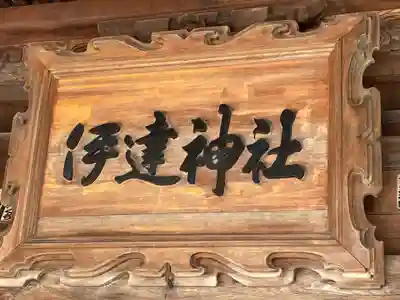 伊達神社